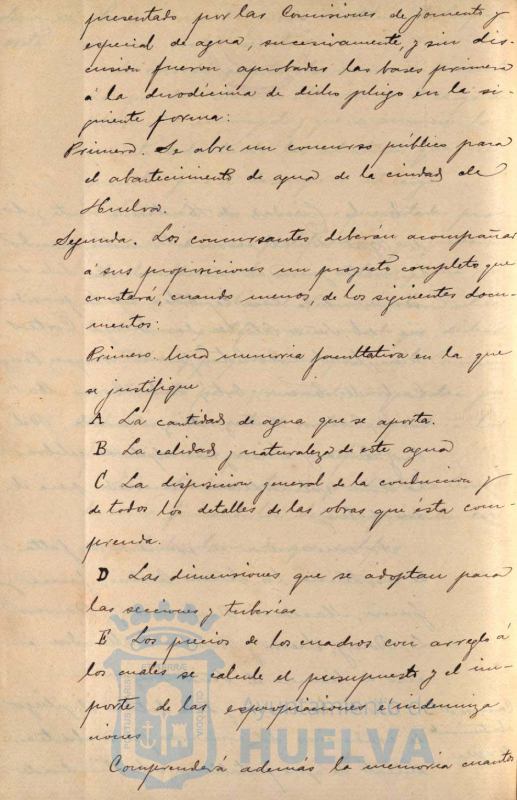 presentado por las Comisiones de fomento y
especial de agua, sucesivamente, y sin dis-
cusión fueron aprobadas las bases primera
á la duodécima de dicho pliego en la si-
guiente forma:
Primera. Se abre un concurso público para
el abastecimiento de agua de la ciudad de
Huelva.
Segunda. Los concursantes deberán acompañar
á sus proposiciones un proyecto completo que
constará, cuando menos, de los siguientes docu-
mentos:
Primero. Una memoria facultativa en la que
se justifique
A La cantidad de agua que se aporta.
B La calidad y naturaleza de este agua
C La disposicion general de la conduccion y
de todos los detalles de las obras que ésta com-
prenda.
D Las dimensiones que se adoptan para
las secciones y tuberías
E Los precios de los cuadros con arreglo á
los cuales se calcule el presupuesto y el im-
porte de las espropiaciones é indemniza
ciones
Comprenderá además la memoria cuantos
Ayuntamiento de
HUELVA